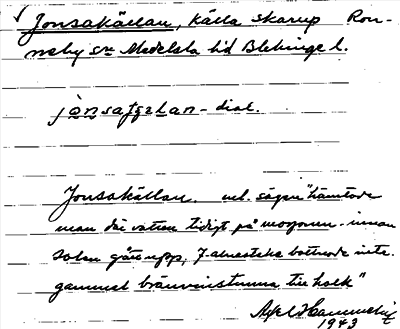 √ Jonsakällan, källa Skarup Ron-
neby sn Medelsta hd Blekinge l.
dial.
Jonsakällan. enl. sägen "hämtade
man där vatten tidigt på morgonen innan
solen gått upp, bottnade inte.
gammal brännvinstunna till kolk"
Axel
1943